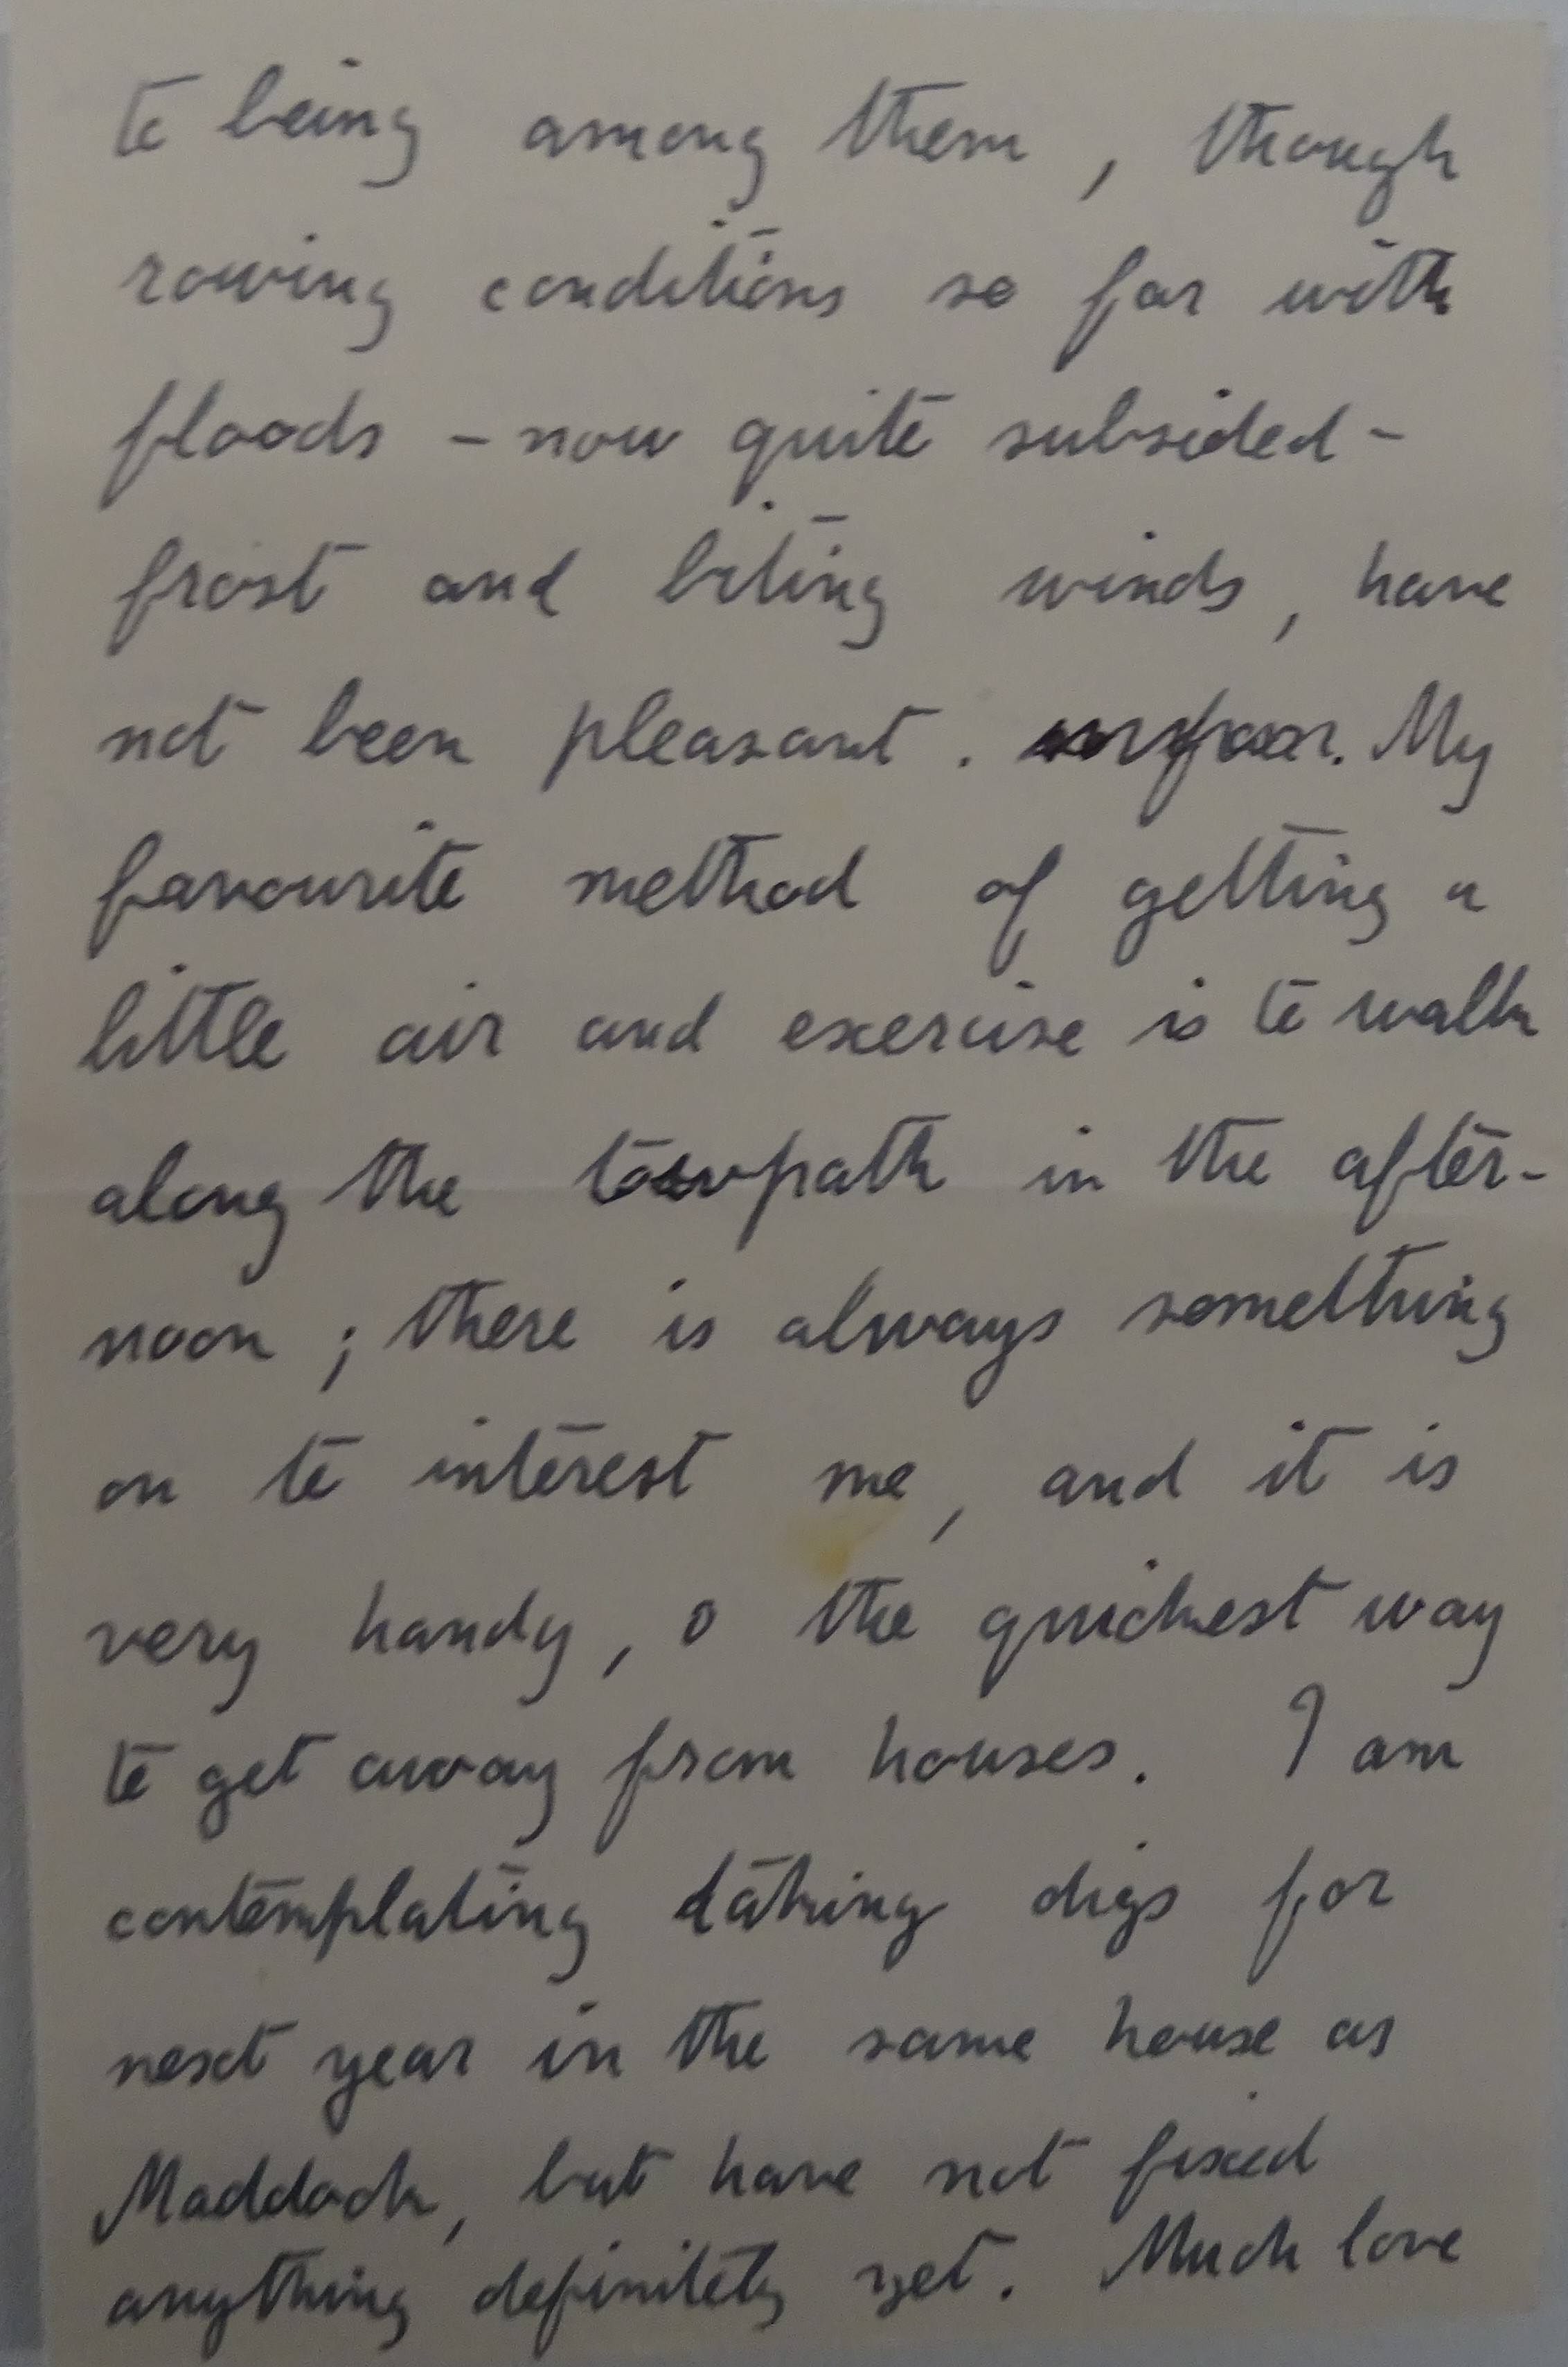 to being among them, though
rowing conditions so far with
floods - now quite subsided -
frost and biting winds, have
not been pleasant. My
favourite method of getting a
little air and exercise is to walk
along the towpath in the after-
noon; there is always something
on to interest me, and it is
very handy, o the quickest way
to get away from houses. I am
contemplating taking digs for
next year in the same house as
Maddock, but have not fixed
anything definitely yet. Much love